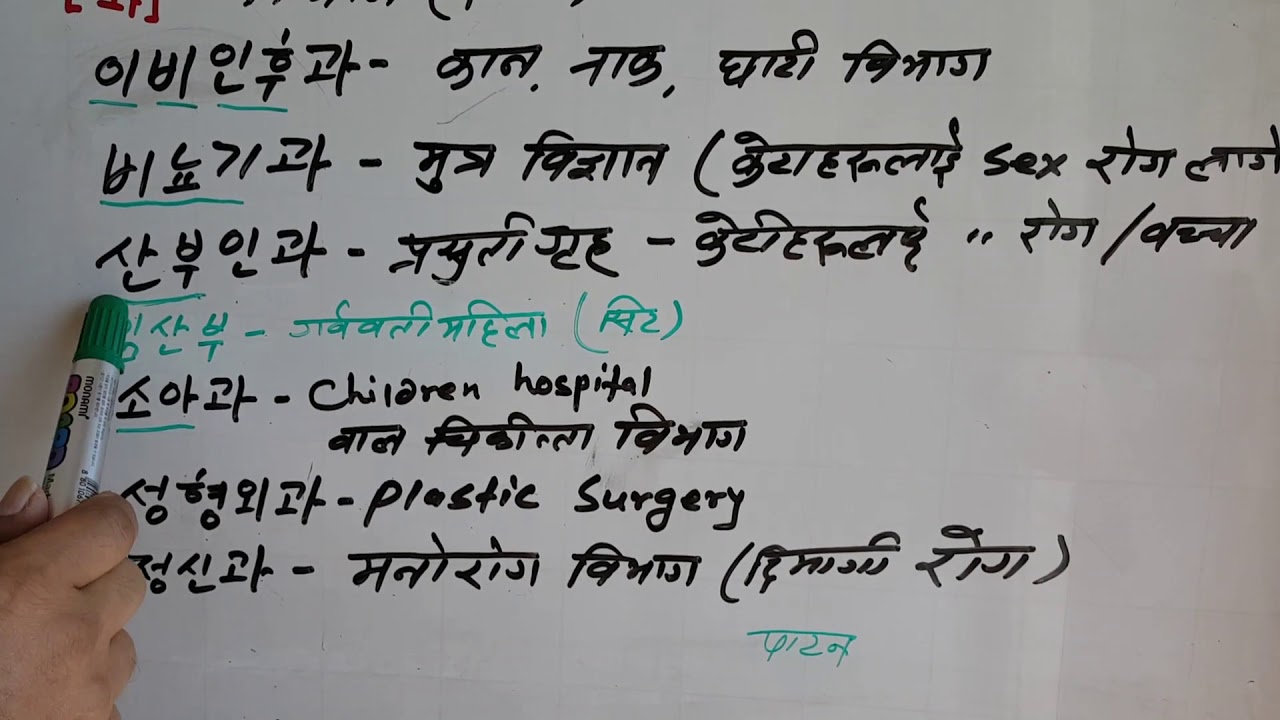 이비인후과 - कान, नाक, घाटी विभाग
비뇨기과 - मुत्र विज्ञान (केटाहरूलाई sex रोग लागे
산부인과 - प्रसुती गृह - केटीहरूलाई " रोग / बच्चा
산부 - गर्ववती महिला (सिट)
소아과 - Children hospital
बाल चिकीत्सा विभाग
성형외과 - Plastic Surgery
정신과 - मनोरोग विभाग (दिमागी रोग)
पाटन
monami